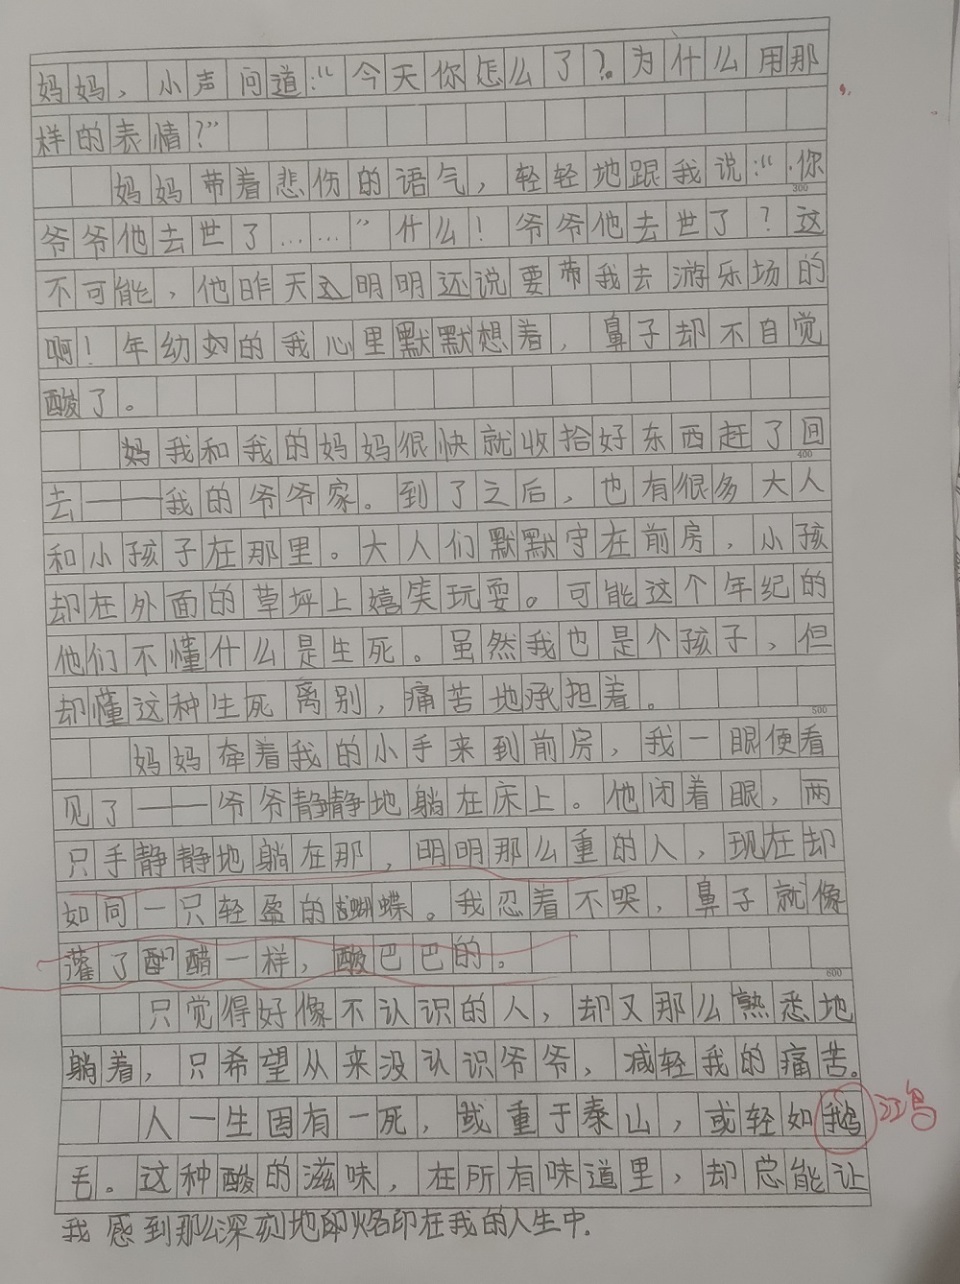 妈妈，小声问道:“今天你怎么了?。为什么用那
样的表情?”
妈妈带着悲伤的语气，轻轻地跟我说:“你
300
爷爷他去世了……”什么！爷爷他去世了？这
不可能，他昨天明明还说要带我去游乐场的
啊！年幼的我心里默默想着，鼻子却不自觉
酸了。
我和我的妈妈很快就收拾好东西赶了回
400
去——我的爷爷家。到了之后，也有很多大人
和小孩子在那里。大人们默默守在前房，小孩
却在外面的草坪上嬉笑玩耍。可能这个年纪的
他们不懂什么是生死。虽然我也是个孩子，但
却懂这种生死离别，痛苦地承担着。
500
妈妈牵着我的小手来到前房，我一眼便看
见了——爷爷静静地躺在床上。他闭着眼，两
只手静静地躺在那，明明那么重的人，现在却
如同一只轻盈的蝴蝶。我忍着不哭，鼻子就像
灌了醋一样，酸巴巴的。
600
只觉得好像不认识的人，却又那么熟悉地
躺着，只希望从来没认识爷爷，减轻我的痛苦。
人一生固有一死，或重于泰山，或轻如鹅
毛。这种酸的滋味，在所有味道里，却总能让
我感到那么深刻地印烙印在我的人生中.